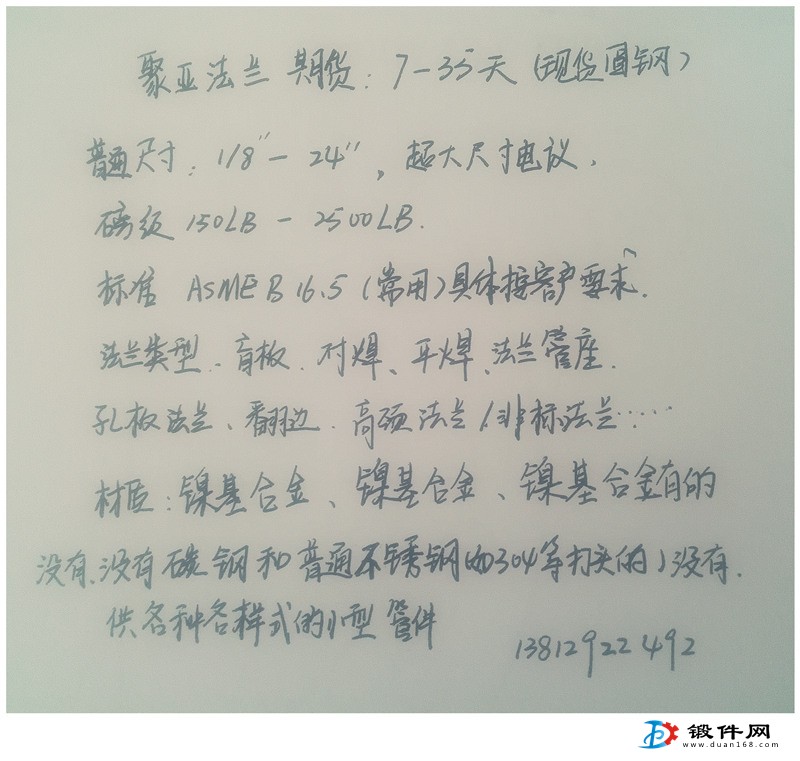 聚亚法兰 期货：7-35天（现货圆钢）
普通尺寸：1/8"-24"，超大尺寸电议.
磅级 150LB - 2500LB.
标准 ASME B 16.5（常用）具体按客户要求.
法兰类型、盲板、对焊、平焊、法兰管座.
孔板法兰、翻边、高颈法兰、非标法兰……
材质：镍基合金、镍基合金、镍基合金有的
没有、没有碳钢和普通不锈钢(如304等打头的)没有.
供各种各样式的小型管件
13812922492
锻件网
www.duan168.com